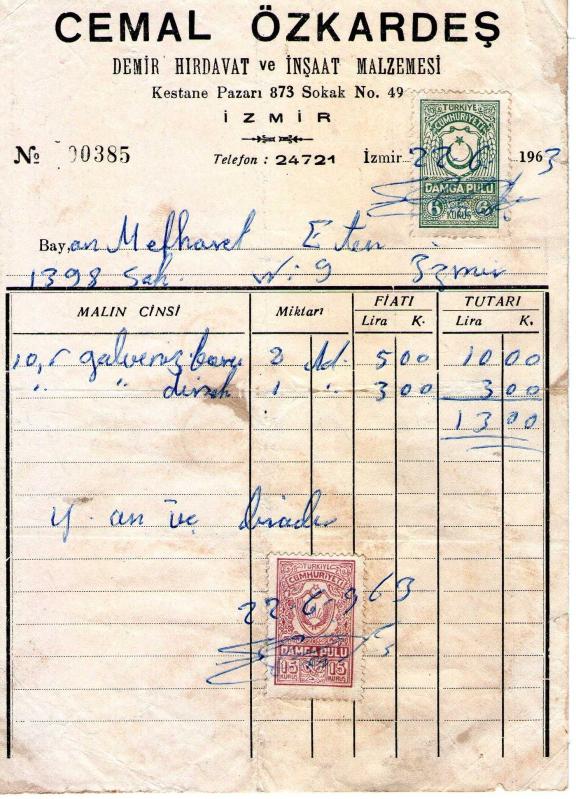 CEMAL ÖZKARDEŞ
DEMİR HIRDAVAT ve İNŞAAT MALZEMESİ
Kestane Pazarı 873 Sokak No. 49
İZMİR
№ 00385
Telefon : 24721
İzmir 22.6 1963
TÜRKİYE
CUMHURİYETİ
DAMGA PULU
KURUŞ
Bay,an
1398 Sok. 9 İzmir
MALIN CİNSİ Miktarı FİATI TUTARI
Lira K. Lira K.
galveniz boru 2 Ad. 5 00 10 00
" " dirsek 1 " 3 00 3 00
13 00
Y. on üç liradır
TÜRKİYE
CUMHURİYETİ
22-6-963
DAMGA PULU
15 15
KURUŞ KURUŞ